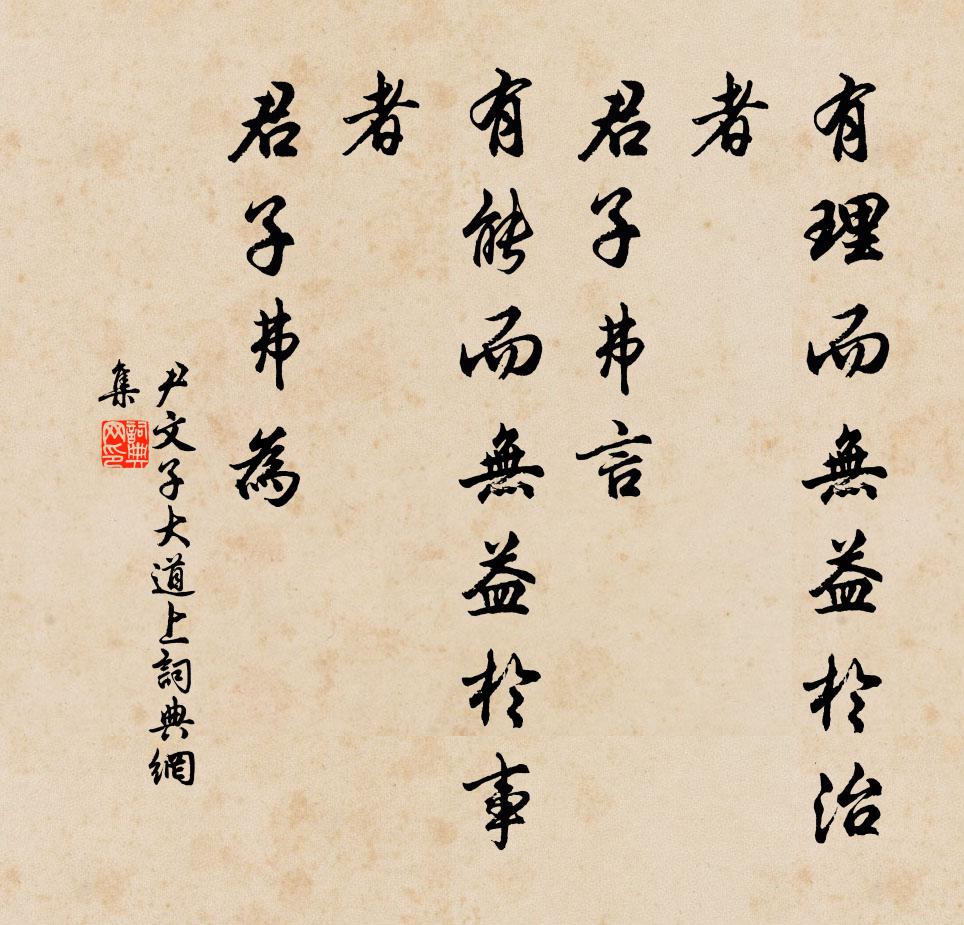 有理而無益於治
者
君子弗言
有能而無益於事
者
君子弗為
尹文子大道上詞典網
集
詞典
网印